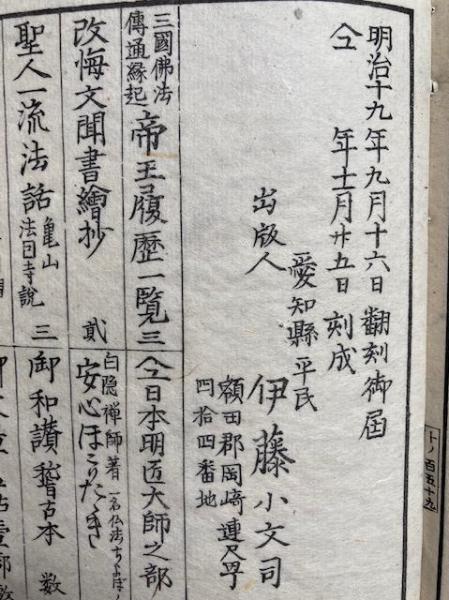 明治十九年九月十六日翻刻御届
仝 年十一月廿五日刻成
愛知縣平民
出版人 伊藤小文司
額田郡岡﨑連尺町
四拾四番地
三國佛法
傳通縁起
帝王履歴一覧 三
仝日本明匠大師之部
改悔文聞書繪抄 貳
白隠禅師著
安心ほこりたゝき
聖人一流法話 亀山
法因寺説 三
御和讃稽古本 数
トノ百五十九